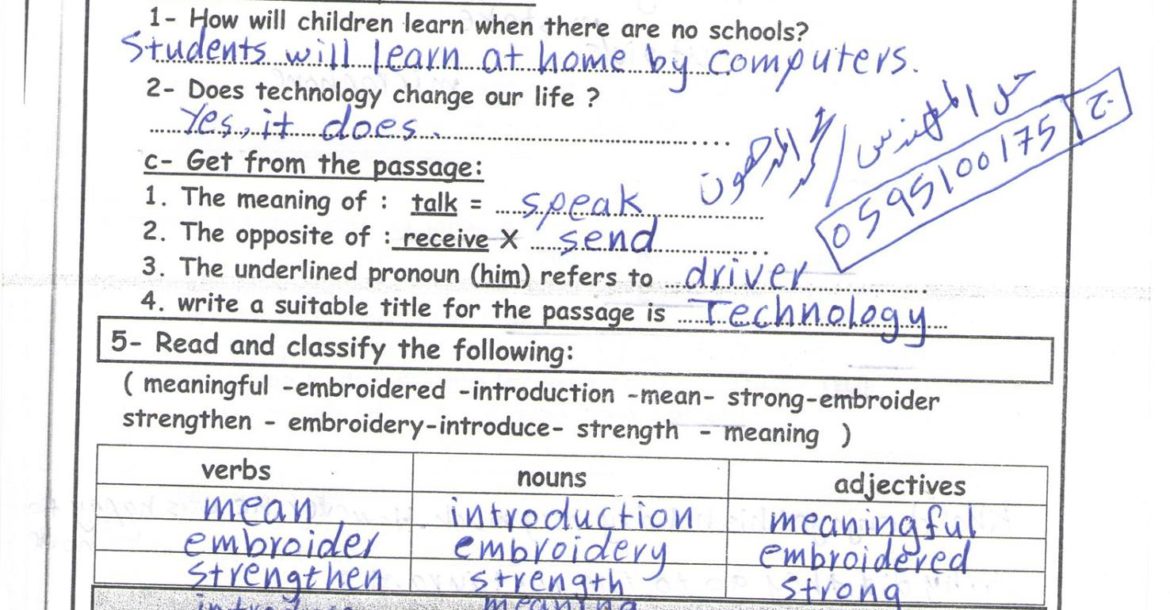 1- How will children learn when there are no schools?
Students will learn at home by computers.
2- Does technology change our life ?
Yes, it does.
حل المهندس / محمد المدهون
0595100175 ج
c- Get from the passage:
1. The meaning of : talk = speak
2. The opposite of : receive X send
3. The underlined pronoun (him) refers to driver
4. write a suitable title for the passage is Technology
5- Read and classify the following:
( meaningful -embroidered -introduction -mean- strong-embroider
strengthen - embroidery-introduce- strength - meaning )
verbs nouns adjectives
mean introduction meaningful
embroider embroidery embroidered
strengthen strength strong
introduce meaning